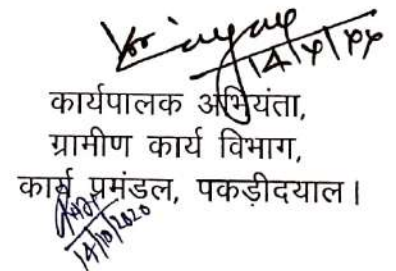 कार्यपालक अभियंता,
ग्रामीण कार्य विभाग,
कार्य प्रमंडल, पकड़ीदयाल।
14/10/2020